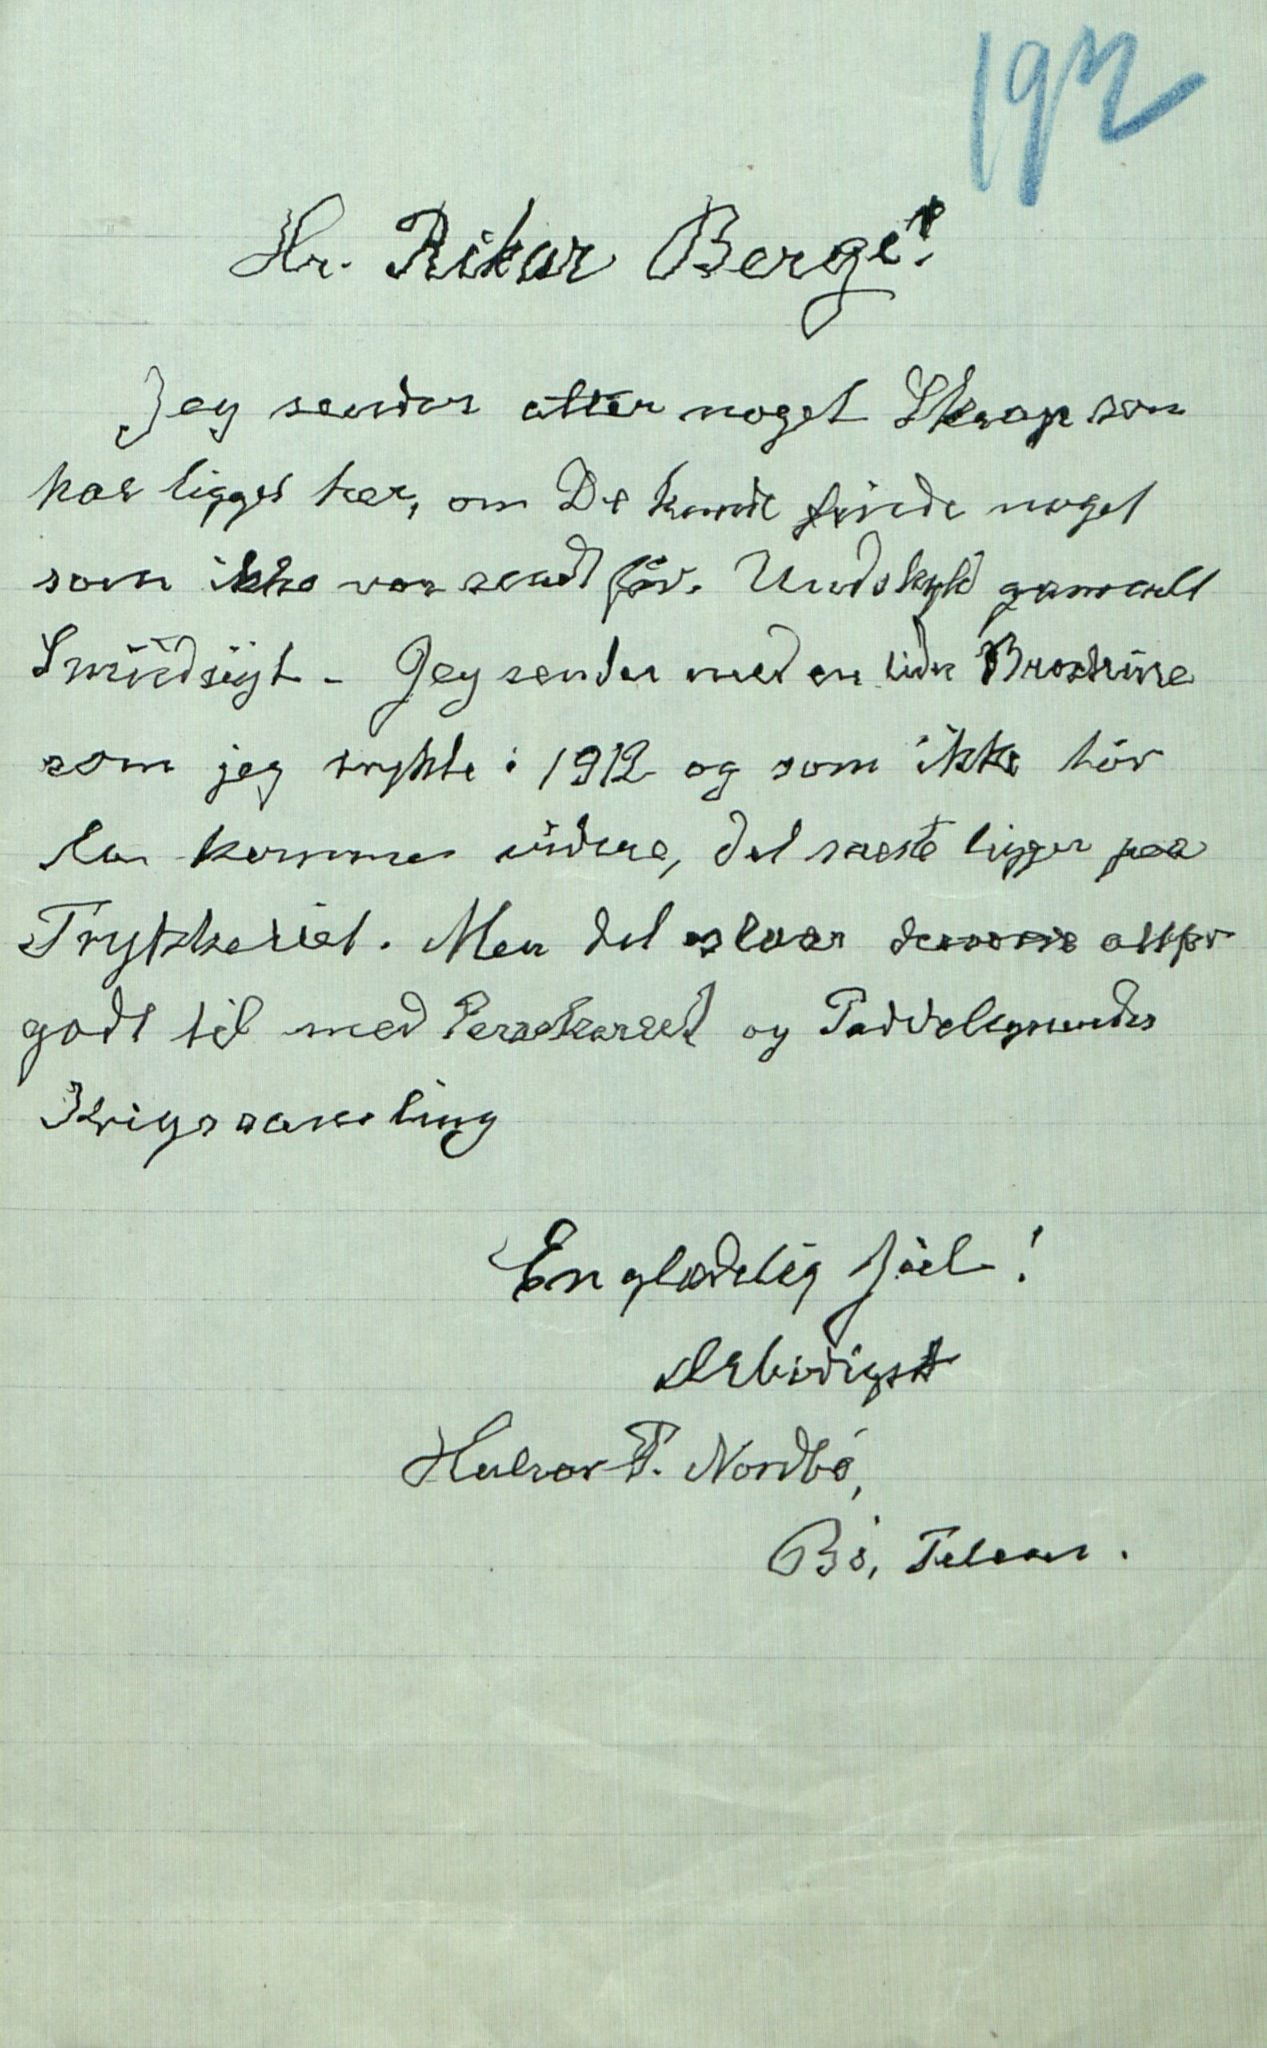 192
Hr. Rikar Berge!
Jeg sender atter noget Skrap som
har ligget her, om De kunde finde noget
som ikke var sendt før. Undskyld gammelt
Smudsigt - Jeg sender med en liden Brochure
som jeg trykte i 1912 og som ikke tør
la komme videre, det næste ligger paa
Trykkeriet. Men det slaar altfor
godt til med og
Krigssamling
En glædelig Jul!
Ærbødigst
Halvor T. Nordbø,
Bø, Telem.